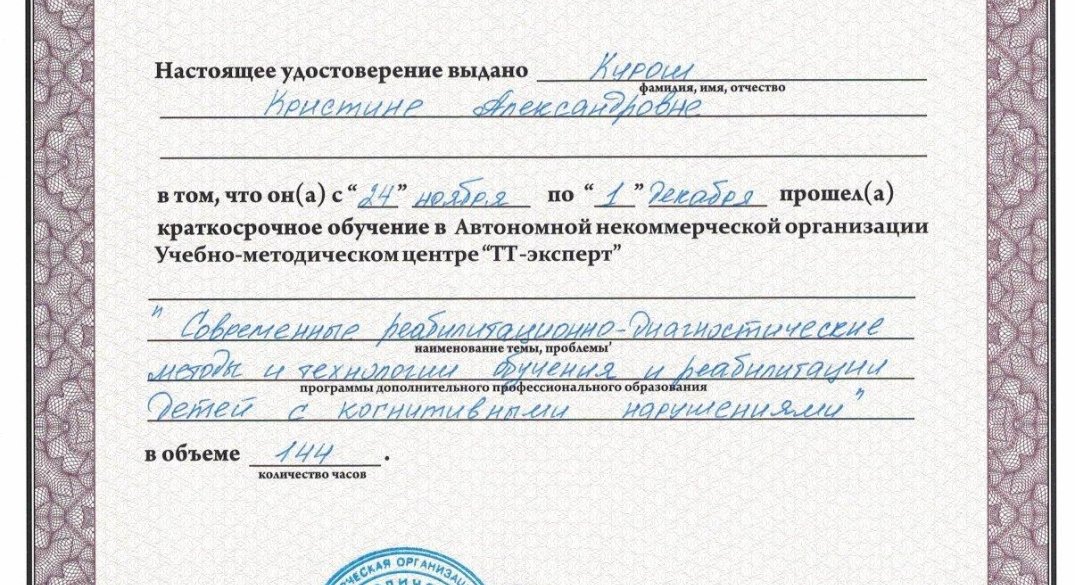 Настоящее удостоверение выдано Кирош
фамилия, имя, отчество
Кристине Александровне
в том, что он(а) с “24” ноября по “1” декабря прошел(а)
краткосрочное обучение в Автономной некоммерческой организации
Учебно-методическом центре “ТТ-эксперт”
" Современные реабилитационно-диагностические
наименование темы, проблемы'
методы и технологии обучения и реабилитации
программы дополнительного профессионального образования
детей с когнитивными нарушениями"
в объеме 144 .
количество часов
ЧЕСКАЯ ОРГАНИЗАЦ